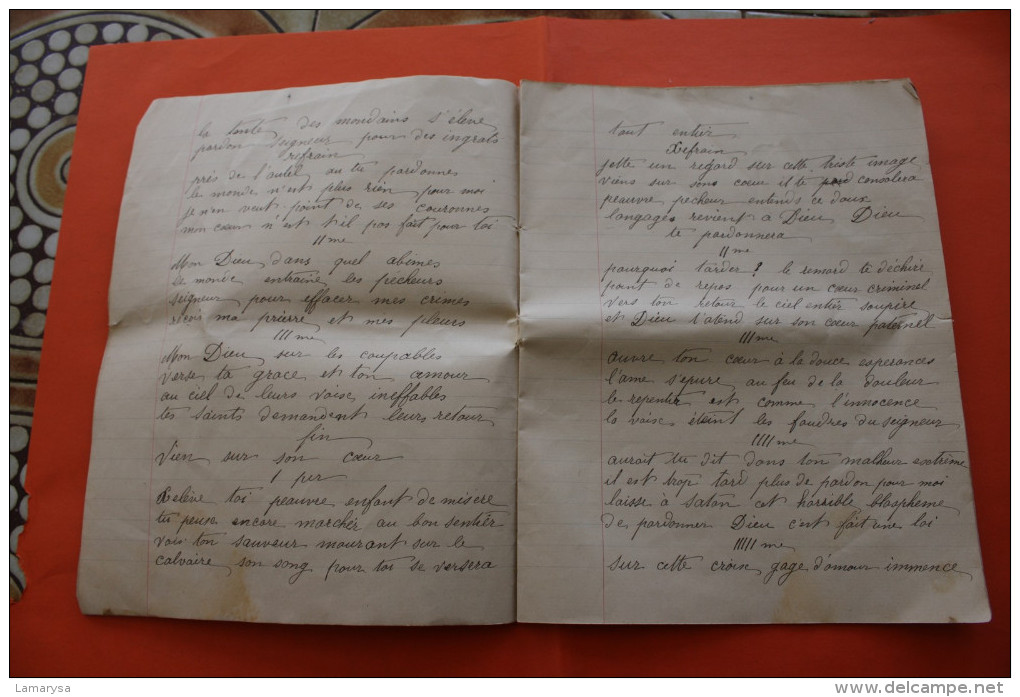 la toute des mondains s'élève
pardon Seigneur pour des ingrats
refrain
près de l'autel au tu pardonnes
le monde n'ent plus rien pour moi
je n'en veut point de ses couronnes
mon cœur n'est t'il pas fait pour toi
II me
Mon Dieu dans quel abimes
se monde entraine les pecheurs
seigneur pour effacer mes crimes
recois ma prierre et mes pleurs
III me
Mon Dieu sur les coupables
verse ta grace et ton amour
au ciel de leurs voixe ineffables
tes saints demandent leurs retour
fin
Vien sur son cœur
1 per
Relève toi peauvre enfant de misere
tu peuse encore marcher au bon sentier
vois ton sauveur mourant sur le
calvaire son song pour toi se versera
tout entier
Refrain
jette un regard sur cette triste image
viens sur sons cœur il te consolera
peauvre pecheur entends ce doux
langages revient a Dieu Dieu
te pardonnera
II me
pourquoi tarder ? le remord te déchire
point de repos pour un cœur criminel
vers ton retour le ciel entier soupire
et Dieu t'atend sur son cœur paternel
III me
ouvre ton cœur à la douce esperances
l'ame s'epure au feu de la douleur
le repentir est comme l'innocence
la voixe éteint les foudres du seigneur
IIII me
aurait tu dit dans ton malheur extrème
il est trop tard plus de pardon pour moi
laisse à satan cet horrible blaspheme
de pardonner Dieu c'nt fait une loi
IIIII me
sur cette croix gage d'amour immence
Lamarysa
delcampe.net